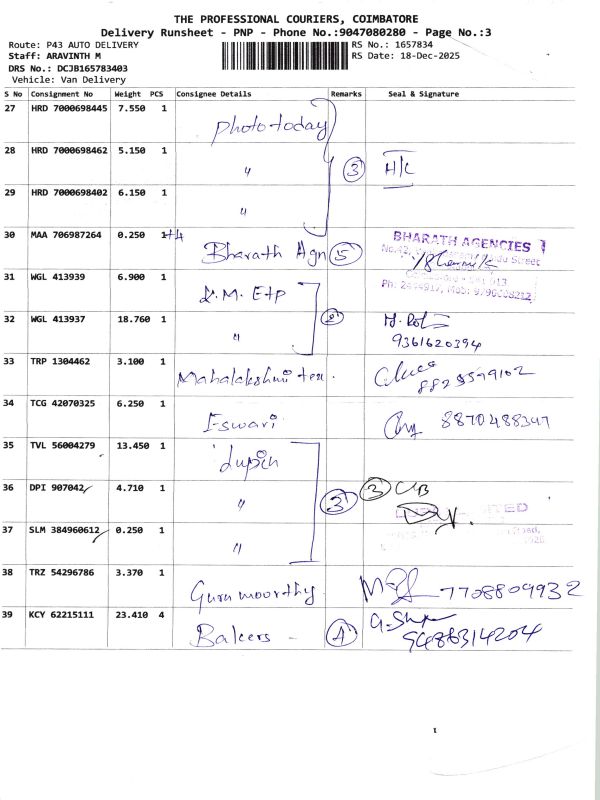 THE PROFESSIONAL COURIERS, COIMBATORE
Delivery Runsheet - PNP - Phone No.:9047080280 - Page No.:3
Route: P43 AUTO DELIVERY RS No.: 1657834
Staff: ARAVINTH M RS Date: 18-Dec-2025
DRS No.: DCJB165783403
Vehicle: Van Delivery
S No Consignment No Weight PCS Consignee Details Remarks Seal & Signature
27 HRD 7000698445 7.550 1 Phototoday
28 HRD 7000698462 5.150 1 " 3 H/C
29 HRD 7000698402 6.150 1 "
30 MAA 706987264 0.250 1+4 Bharath Agn 5 BHARATH AGENCIES
Street
31 WGL 413939 6.900 1
32 WGL 413937 18.760 1 " 2
9361620394
33 TRP 1304462 3.100 1 Mahalakshmi tex.
34 TCG 42070325 6.250 1 Eswari
35 TVL 56004279 13.450 1 Lupin
36 DPI 907042 4.710 1 " 3 3
37 SLM 384960612 0.250 1 "
38 TRZ 54296786 3.370 1 Gurumoorthy 7708809932
39 KCY 62215111 23.410 4 Bakers - 4
9488314204
1